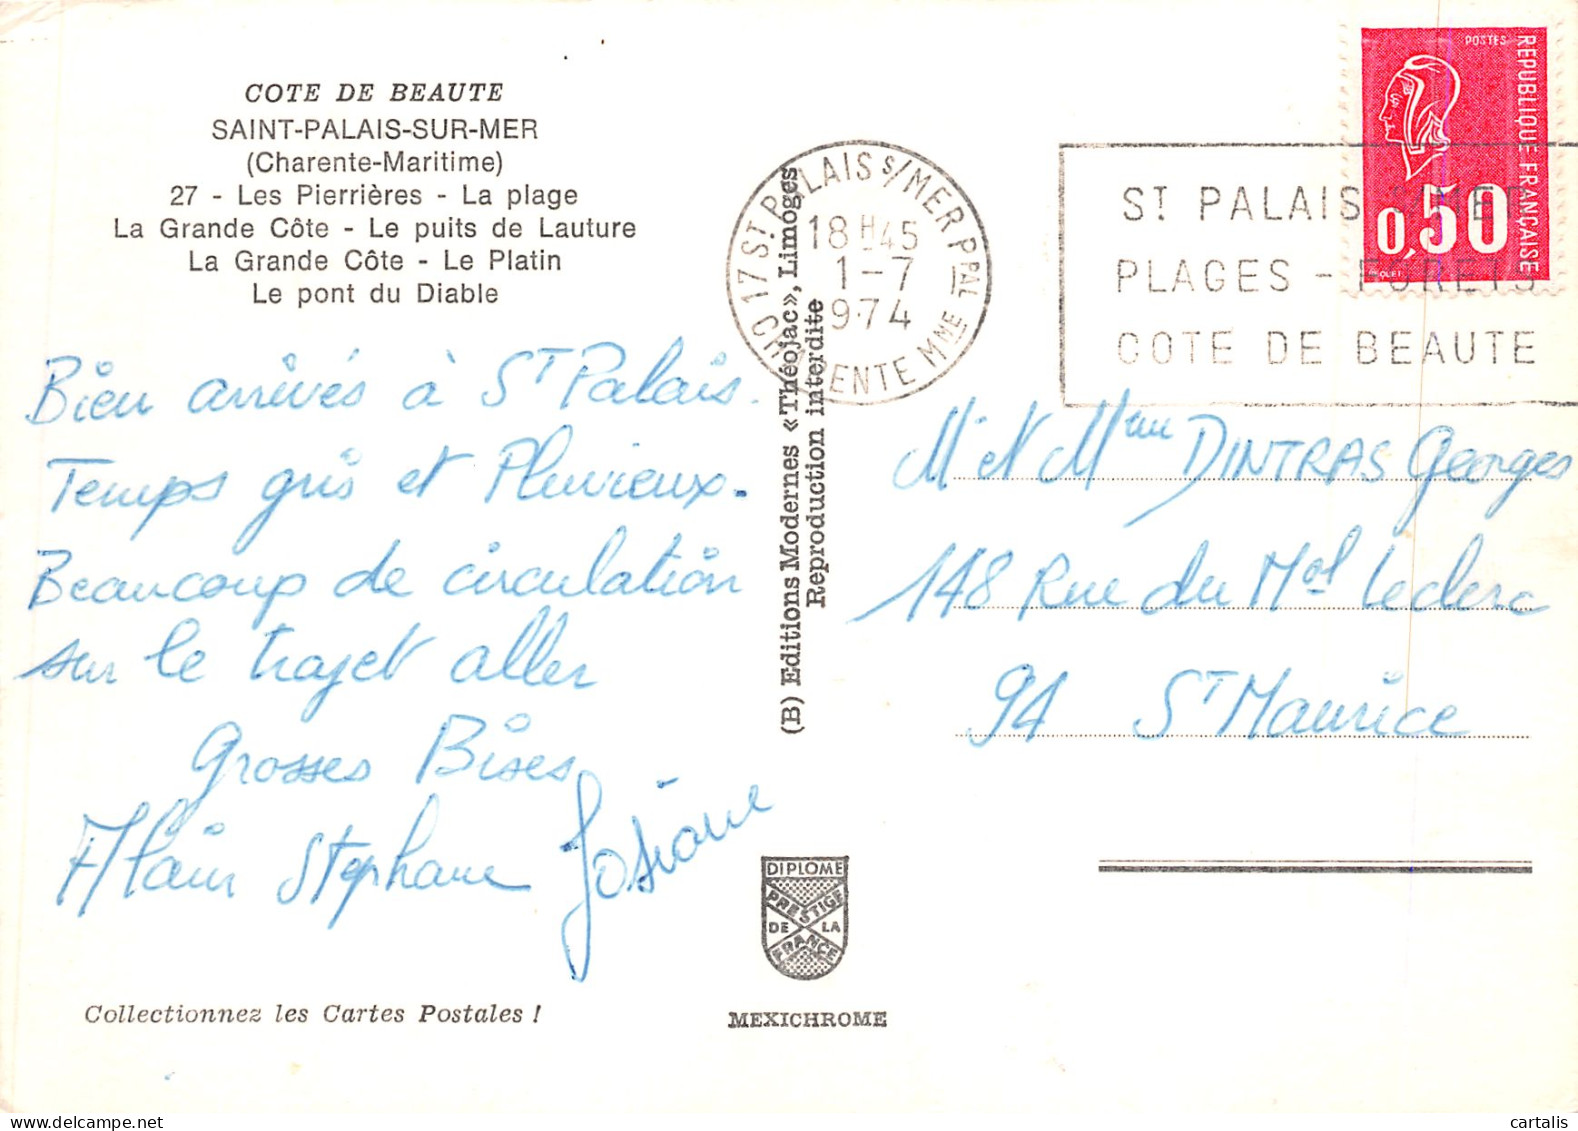 COTE DE BEAUTE
SAINT-PALAIS-SUR-MER
(Charente-Maritime)
27 - Les Pierrières - La plage
La Grande Côte - Le puits de Lauture
La Grande Côte - Le Platin
Le pont du Diable
Bien arrivés à St Palais.
Temps gris et Pluvieux.
Beaucoup de circulation
sur le trajet aller
Grosses Bises
Alain Stephane Josiane
Collectionnez les Cartes Postales !
(B) Editions Modernes «Théojac», Limoges
Reproduction interdite
DIPLOME
PRESTIGE
DE LA
FRANCE
MEXICHROME
17 ST PALAIS S/MER PPAL
18H45
1-7
1974
CHARENTE MME
ST PALAIS S/MER
PLAGES - FORETS
COTE DE BEAUTE
POSTES
REPUBLIQUE FRANÇAISE
0,50
BEQUET
Mr et Mme DINTRAS Georges
148 Rue du Mal Leclerc
94 St Maurice
cartalis
www.delcampe.net